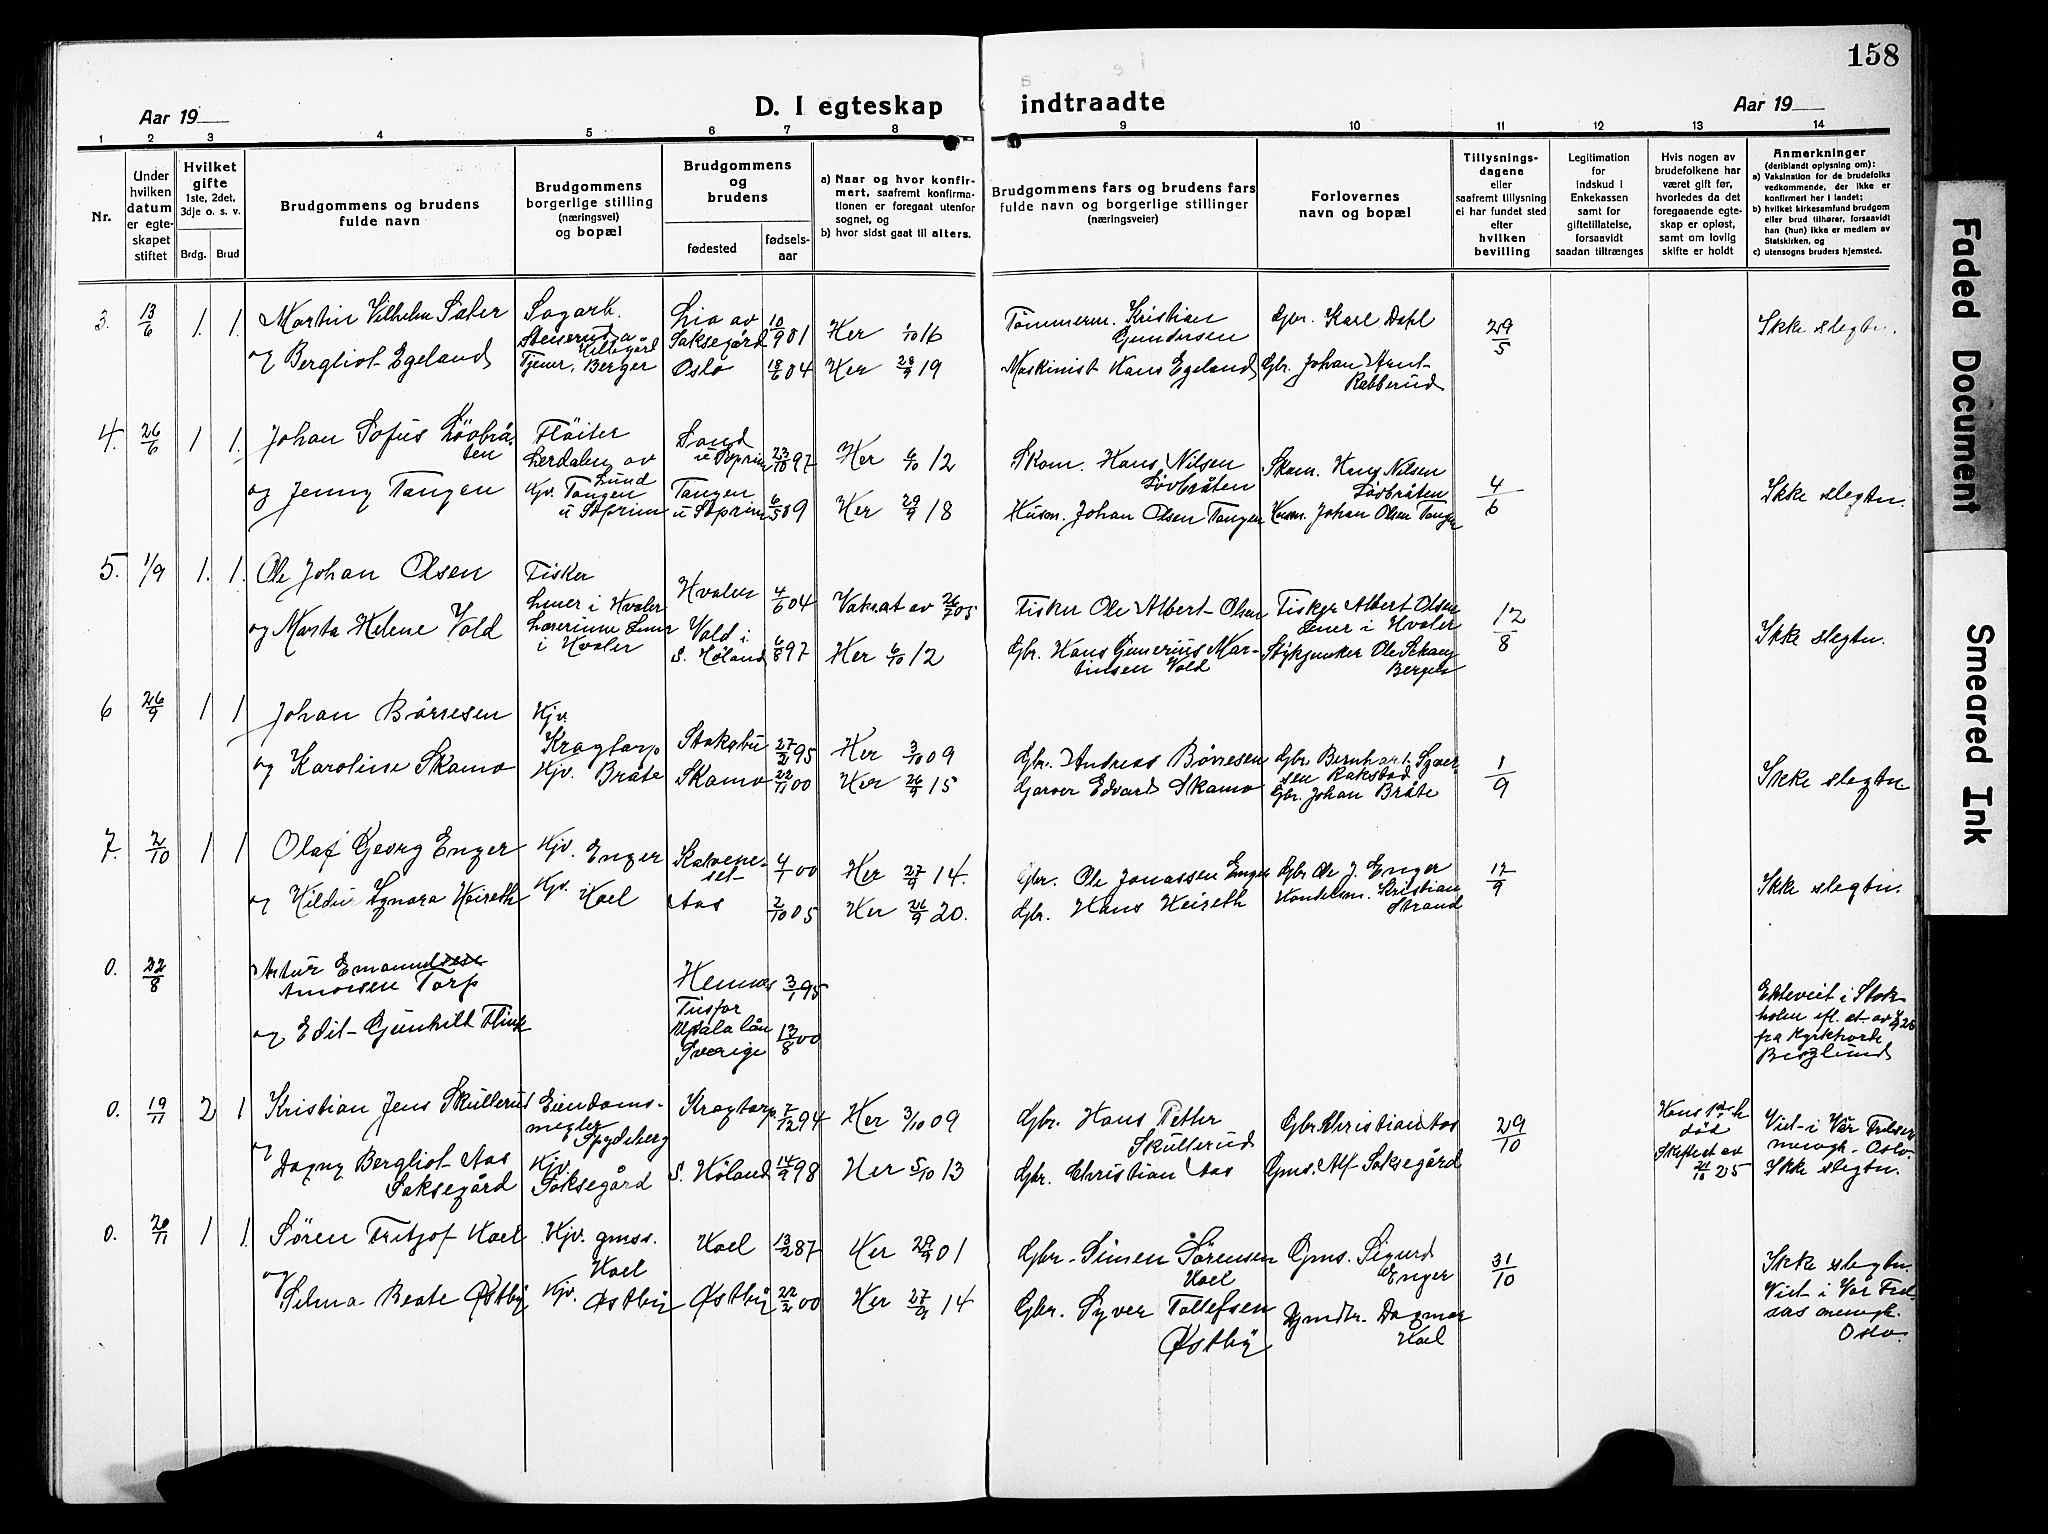 158
Aar 19
D. I egteskap indtraadte
Aar 19
1 2 3 4 5 6 7 8 9 10 11 12 13 14
Nr.
Under hvilken datum er egteskapet stiftet
Hvilket gifte 1ste, 2det, 3dje o. s. v.
Brdg. Brud
Brudgommens og brudens fulde navn
Brudgommens borgerlige stilling (næringsvei) og bopæl
Brudgommens og brudens
fødested
fødsels-aar
a) Naar og hvor konfirmert, saafremt konfirmationen er foregaat utenfor sognet, og
b) hvor sidst gaat til alters.
Brudgommens fars og brudens fars fulde navn og borgerlige stillinger (næringsveier)
Forlovernes navn og bopæl
Tillysningsdagene eller saafremt tillysning ei har fundet sted efter hvilken bevilling
Legitimation for indskud i Enkekassen samt for giftetillatelse, forsaavidt saadan tiltrænges
Hvis nogen av brudefolkene har været gift før, hvorledes da det foregaaende egteskap er opløst, samt om lovlig skifte er holdt
Anmerkninger (deriblandt oplysning om):
a) Vaksination for de brudefolks vedkommende, der ikke er konfirmert her i landet;
b) hvilket kirkesamfund brudgom eller brud tilhører, forsaavidt han (hun) ikke er medlem av Statskirken, og
c) utensogns bruders hjemsted.
3. 13/6 1. 1. Martin Vilhelm Sæter Sagarb. Lia av Saksegård 10/9 01 Her 1/10 16 Tømmerm. Kristian Gundersen Gbr. Karl Dahl 29/5 Ikke slegtn.
og Bergliot Egeland Tjener, Berger Oslo 18/6 04 Her 28/9 19 Maskinist Hans Egeland Gbr. Johan Arnt Rabberud
4. 26/6 1 1. Johan Sofus Løvbråten Fløiter Lerdalen av Lund Sand u Stoprim 23/10 97 Her 6/10 12 Skom. Hans Nilsen Løvbråten Skom. Hans Nilsen Løvbråten 4/6 Ikke slegtn.
og Jenny Tangen Hjv. Tangen u Stoprim Tangen u Stoprim 6/5 89 Her 29/9 18 Husm. Johan Olsen Tangen Husm. Johan Olsen Tangen
5. 1/9 1. 1. Ole Johan Olsen Fisker Lauer i Hvaler Hvaler 4/6 04 Vaksat av 26/7 05 Fisker Ole Albert Olsen Fisker Albert Olsen Lauer i Hvaler 12/8 Ikke slegtn.
og Marta Helene Vold Lærerinne Lauer i Hvaler Vold i S. Høland 6/8 97 Her 6/10 12 Gbr. Hans Gunerius Martinsen Vold Stykjunker Ole Skaug Bergen
6 26/9 1 1 Johan Børresen Hjv. Kragtorp Stoksbu 27/2 95 Her 3/10 09 Gbr. Andreas Børresen Gbr. Bernhart Syversen Rakstad 1/9 Ikke slegtn
og Karoline Skamo Hjv. Bråte Skamo 22/11 00 Her 26/9 15 Garver Edvard Skamo Gbr. Johan Bråte
7. 2/10 1 1 Olaf Georg Enger Hjv. Enger 4/1 00 Her 27/9 14. Gbr. Ole Jonassen Enger Gbr Ole J. Enger 12/9 Ikke slegtn.
og Hildur Ignora Heireth Hjv. Hoel Aas 2/10 05 Her 26/9 20. Gbr. Hans Heireth Handelsm. Kristian Strand
0. 22/8 Artur Emanuel Amorsen Torp Hemnes 3/1 95
og Edit Gunhilt Flink Tusfor Upsala län Sverige 13/8 00 Ekteviet i Stokholm efl. at. av fra Kyrkherde Berglund
0. 19/11 2 1 Kristian Jens Skullerud Eiendomsmegler Spydeberg Kragtorp 7/12 94 Her 3/10 09 Gbr. Hans Petter Skullerud Gbr Christian Aas 29/10 Hans 1ste h død Skiftest av 24/10 25 Viet i Vår Frelser menigh. Oslo. Ikke slegtn.
og Dagny Bergliot Aas Saksegård Hjv. Saksegård S. Høland 14/9 98 Her 5/10 13 Gbr. Christian Aas Gms. Alf Saksegård
0. 20/11 1 1. Søren Fritjof Hoel Hjv. gmss. Hoel Hoel 13/2 87 Her 29/9 01 Gbr. Simen Sørensen Hoel Gms. Sigurd Enger 31/10 Ikke slegtn. Viet i Vår Frelsers menigh. Oslo.
og Selma Beate Østby Hjv. Østby Østby 22/2 00 Her 27/9 14 Gbr. Syver Tollefsen Østby Gmdtr. Dagmar Hoel
Faded Document
Smeared Ink